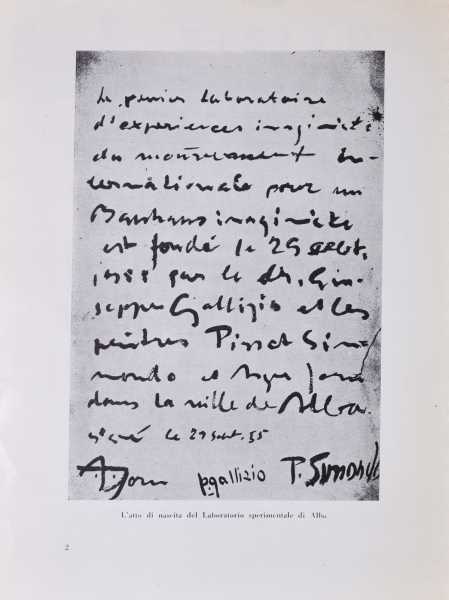 Le premier Laboratoire
d'experiences imaginistes
du mouvement In-
ternationale pour un
Bauhaus imaginiste
est fondé le 29 sebt.
1955 par le Dr. Giu-
seppe Gallizio et les
peintres Pierrot Simon
mondo et Asger Jorn
dans la ville de Alba.
signé le 29 sebt. 55
A Jorn p.gallizio P. SIMONDO
L'atto di nascita del Laboratorio sperimentale di Alba
2